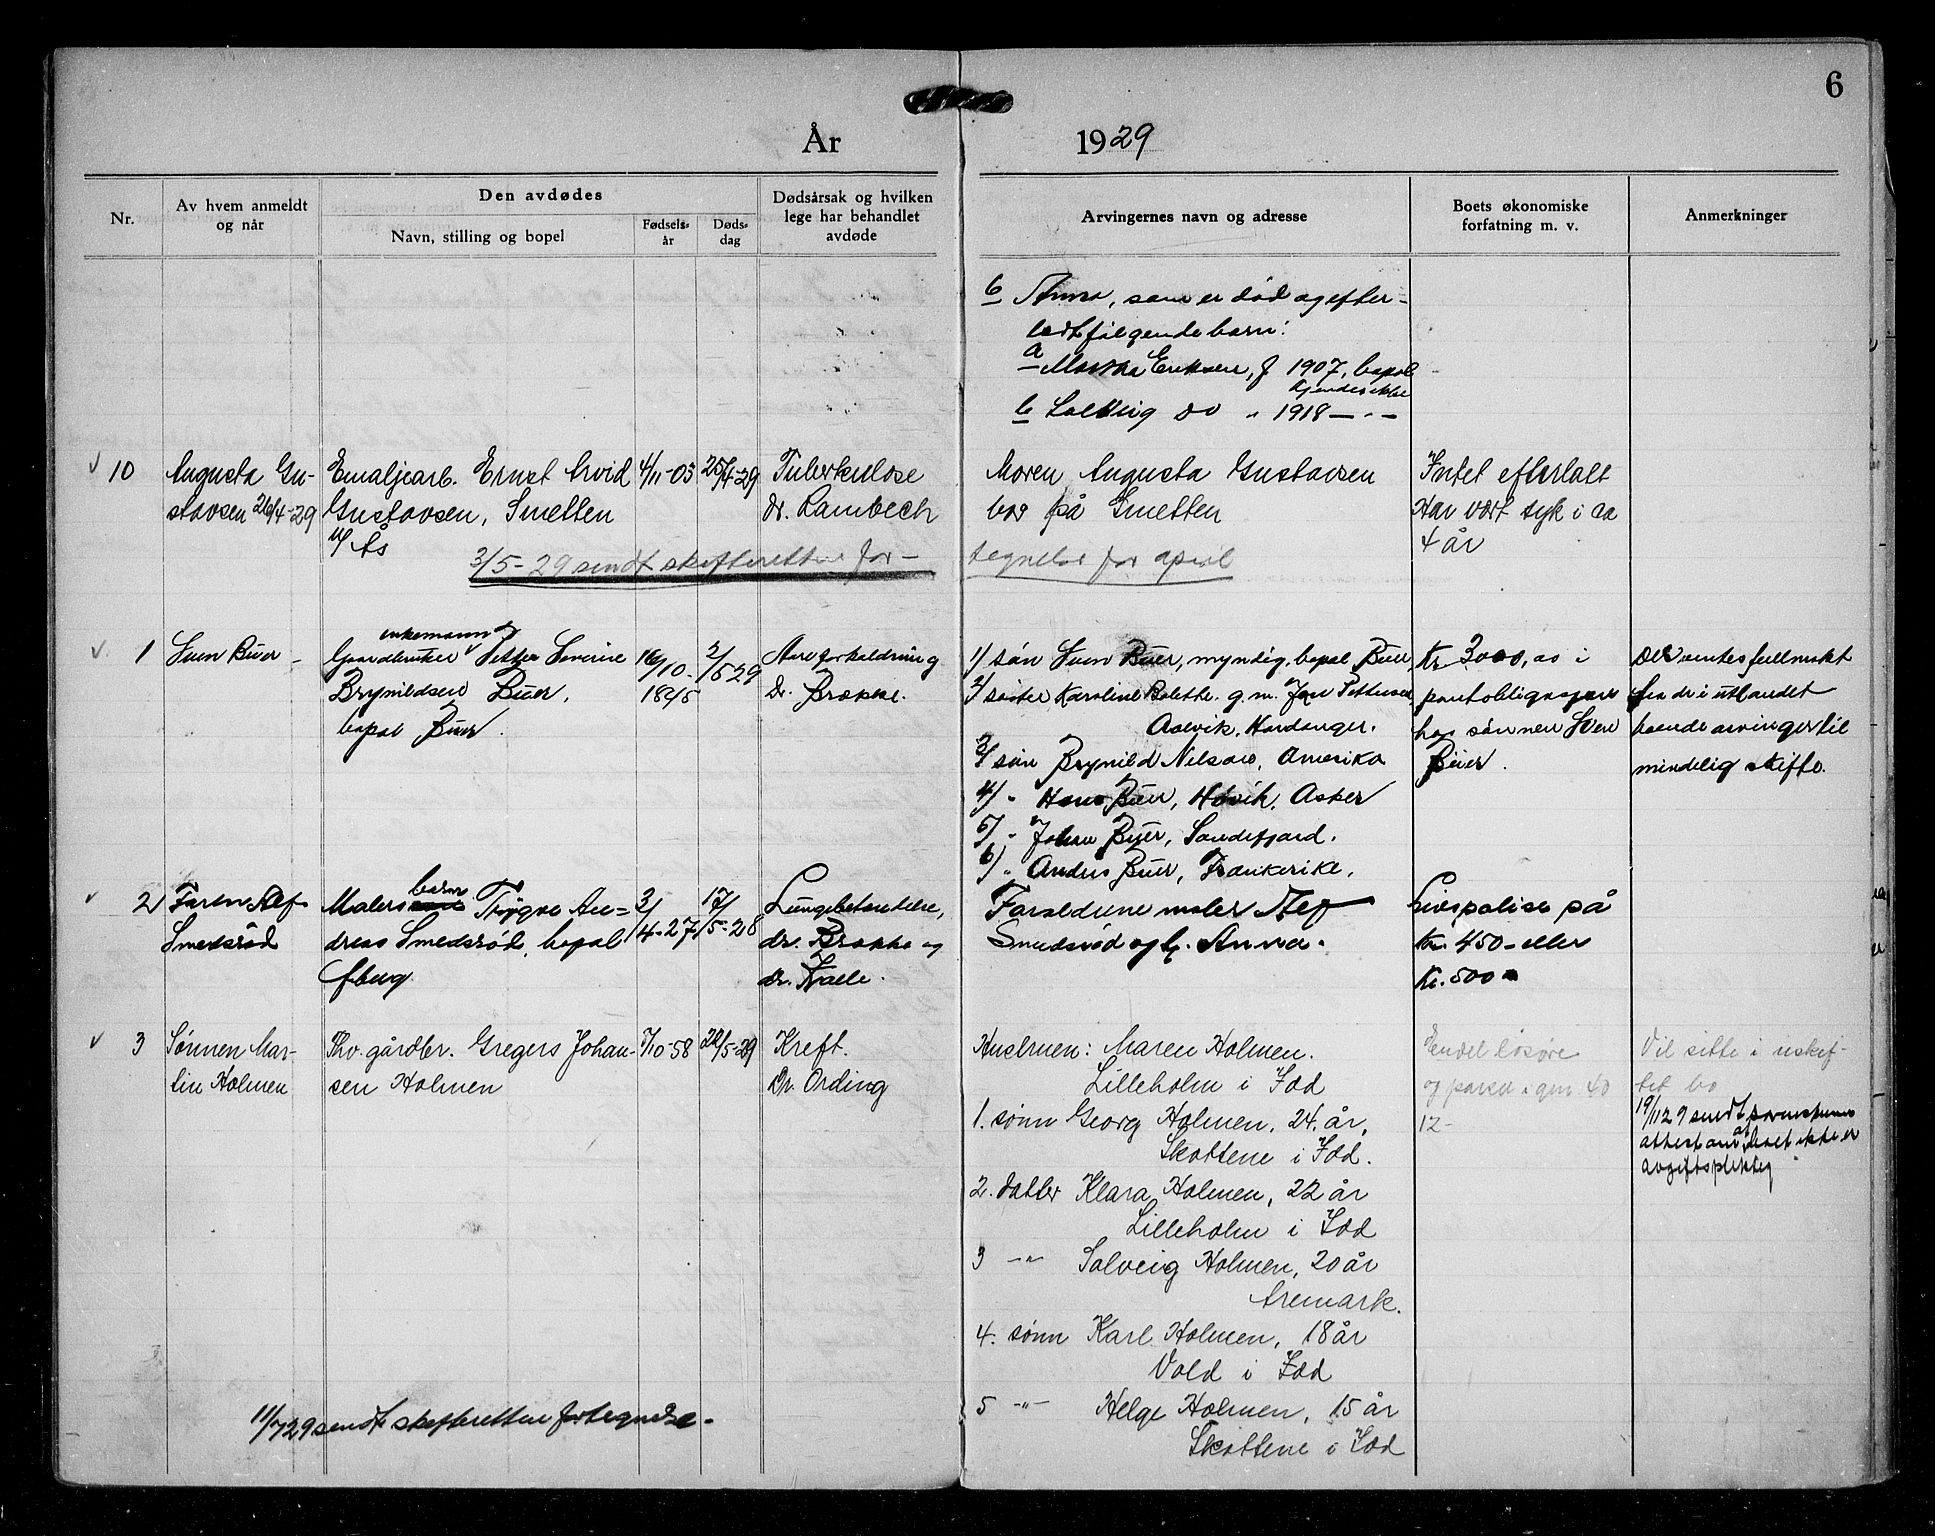 6
År 1929
Nr.
Av hvem anmeldt
og når
Den avdødes
Navn, stilling og bopel
Fødsels-
år
Døds-
dag
Dødsårsak og hvilken
lege har behandlet
avdøde
Arvingernes navn og adresse
Boets økonomiske
forfatning m. v.
Anmerkninger
6 Anna, som er död og efter-
latt følgende barn:
a Martha Eriksen, f 1907, bopel
kjendes ikke
b Solveig do " 1918 — " —
10
Augusta Gu-
stavsen 26/4-29
Emaljearb. Ernst Arvid
Gustavsen, Smetten
4/11-03
25/4-29
Tuberkulose
dr. Lambech
Moren Augusta Gustavsen
bor på Smetten
Intet efterlatt
Har vært syk i ca
4 år
3/5-29 sendt skifteretten for-
tegnelse for april
1
Sven Buer
enkemann
Gaardbruker Petter Severin
Brynildsen Buer,
bopel Buer.
16/10-
1845
2/5 29
Aareforkaldning
Dr. Brække.
1/ søn Sven Buer, myndig, bopel Buer
2/ søster Karoline Bolethe. g. m. Jon Pettersen
Aalvik, Hardanger.
3/ søn Brynild Nelson, Amerika
4/ " Hans Buer, Høvik, Asker
5/ " Johan Buer, Sandefjord.
6/ " Anders Buer, Frankerike.
Kr 3000,00 i
pantobligasjon
hos sønnen Sven
Buer.
Det ventes fullmakt
fra de i utlandet
boende arvinger til
mindelig skifte.
2
Faren Alf
Smedsrød
barn
Malers Trygve An-
dreas Smedsrød, bopel
3/4-27
17/5-28
Lungebetendelse,
dr. Brække og
dr. Kaele.
Foreldrene maler Alf
Smedsrød og h. Anna.
Livspolise på
Kr. 450- eller
Kr. 500-
3
Sønnen Mar-
tin Holmen
Fhv. gårdbr. Gregers Johan-
sen Holmen
7/10-58
22/5-29
Kreft.
Dr. Ording
Hustruen: Maren Holmen.
Lilleholm i Idd
1. sønn Georg Holmen, 24 år,
Skottene i Idd.
2. datter Klara Holmen, 22 år
Lilleholm i Idd
3 —"— Solveig Holmen, 20 år
Aremark.
4. sønn Karl Holmen, 18 år
Vold i Idd
5 —"— Helge Holmen, 15 år
Skottene i Idd
Endel løsøre
og parsel i gnr 40
12-
Vil sitte i uskif-
tet bo
19/11 29 sendt
attest om at boet ikke er
avgiftspliktig
11/7 29 sendt skifteretten fortegnelse.